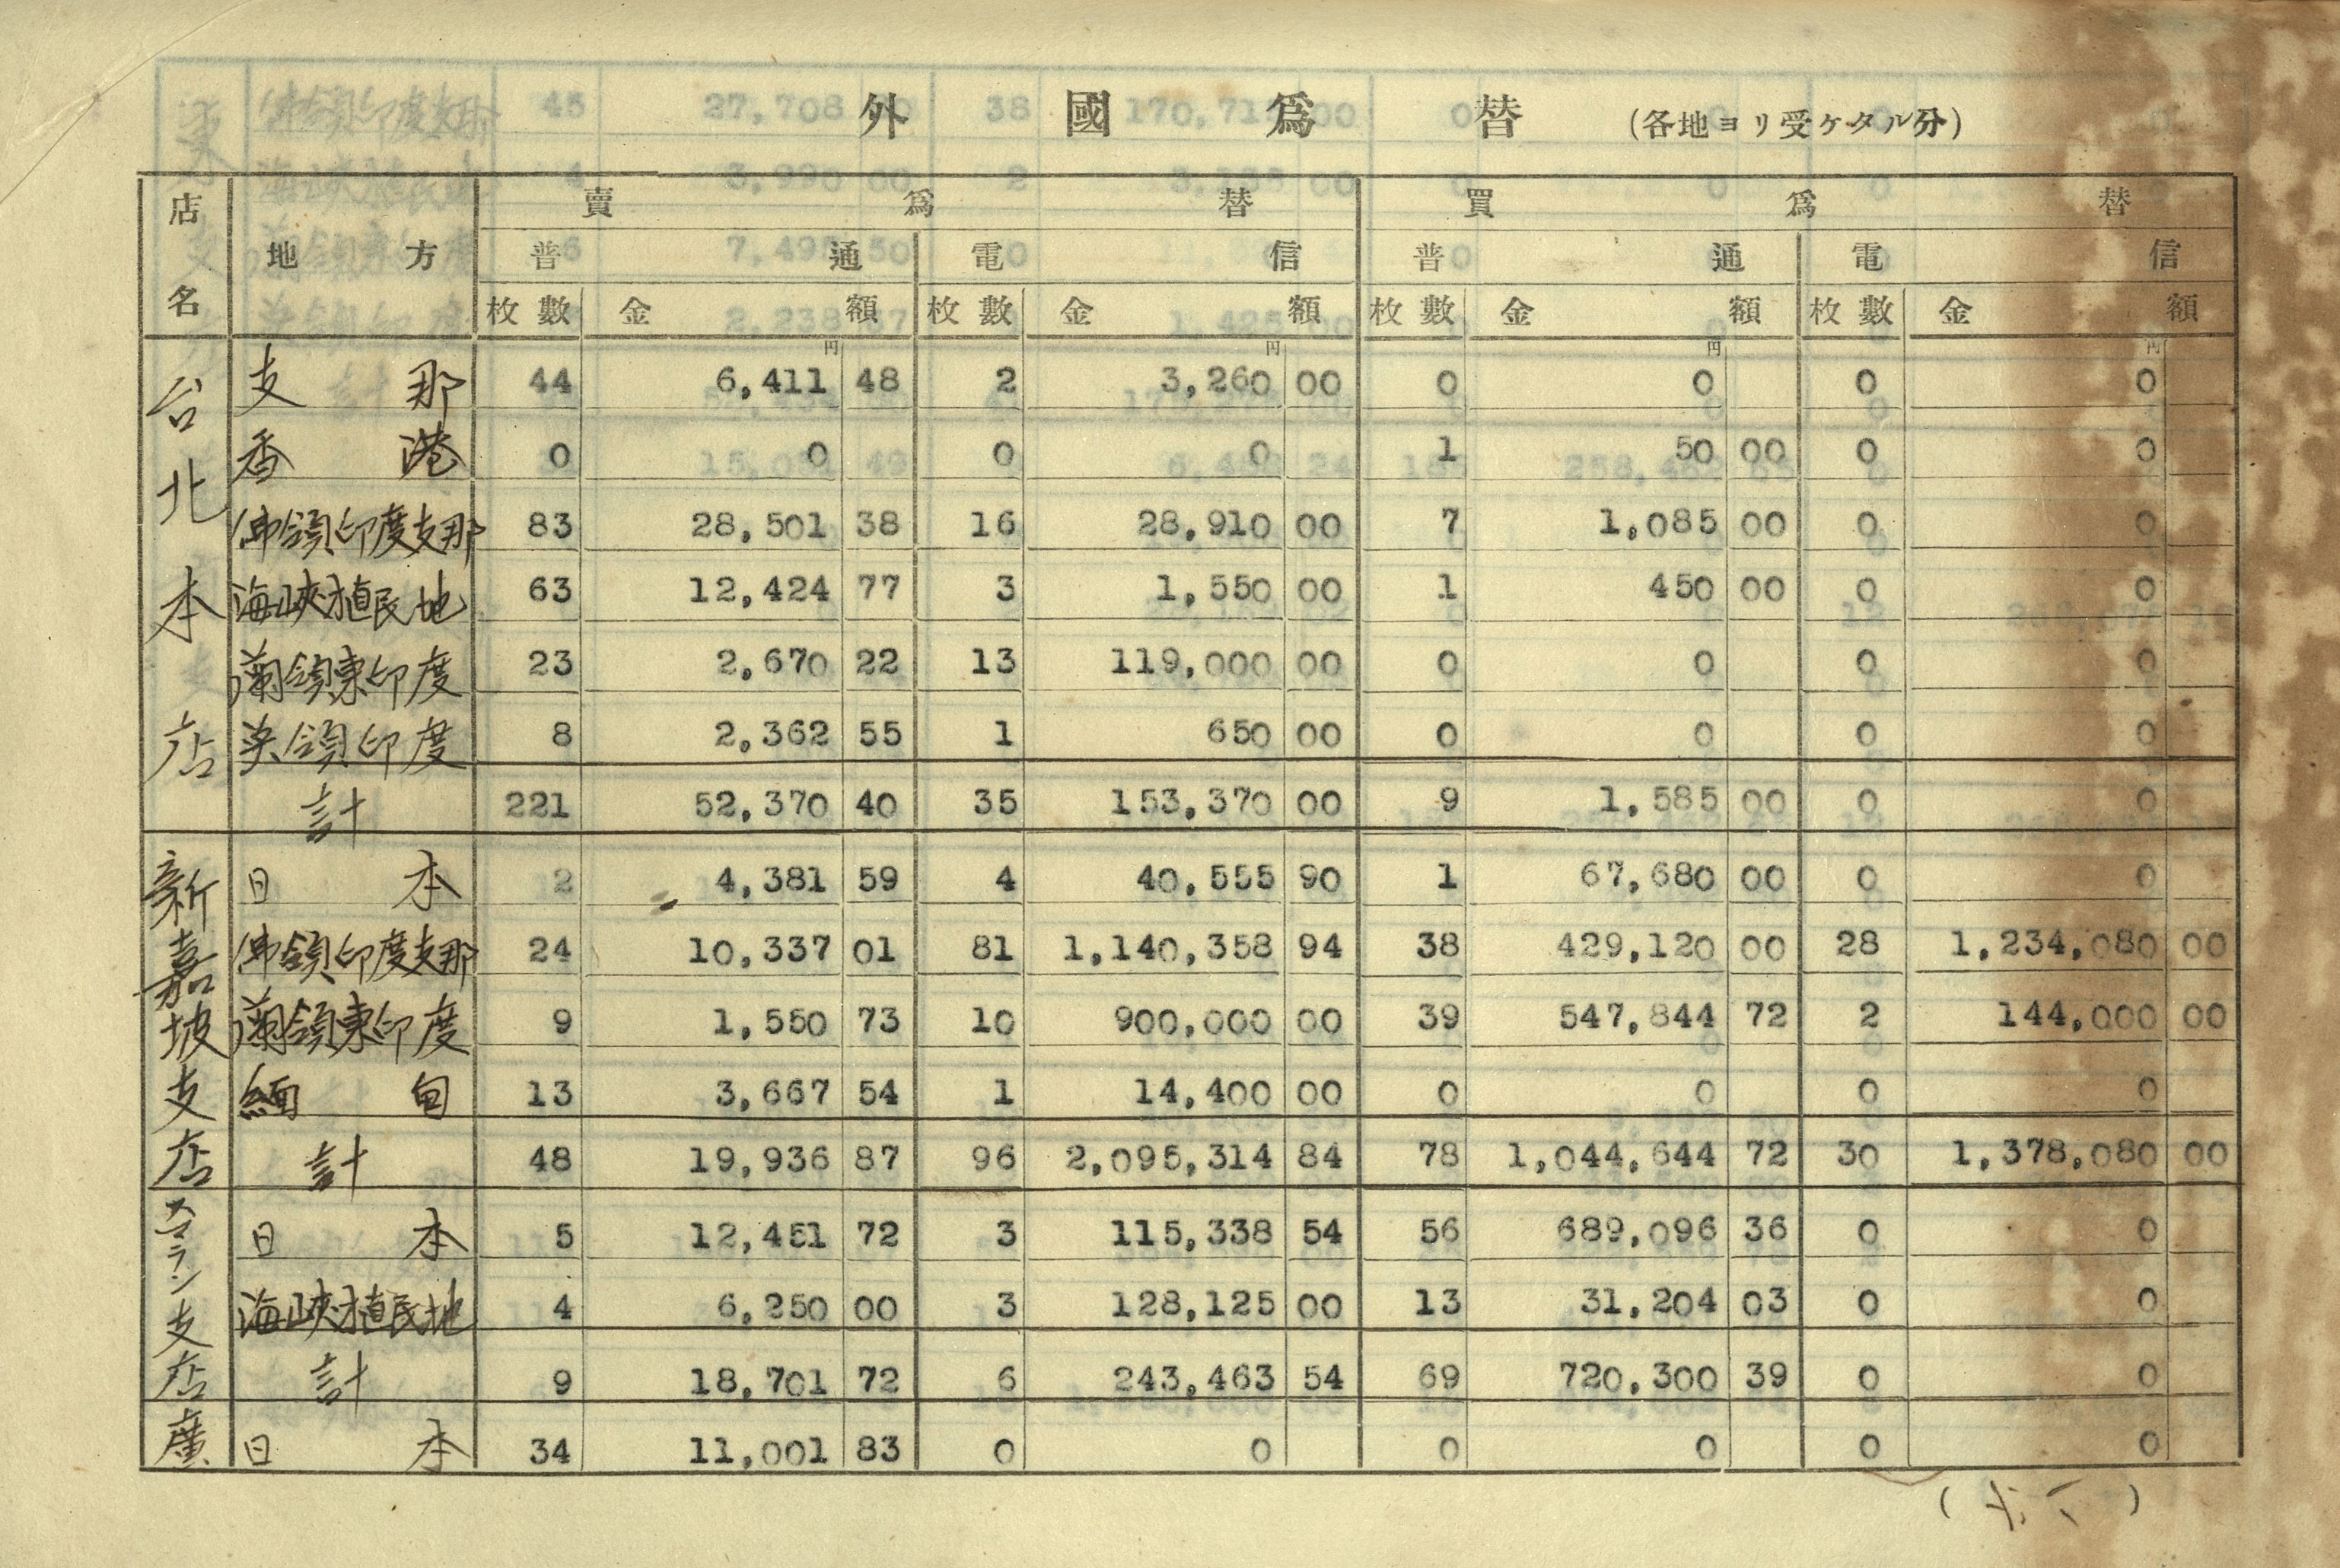 外國爲替 (各地ヨリ受ケタル分)
店名 地方 賣爲替 買爲替
普通 電信 普通 電信
枚數 金額 枚數 金額 枚數 金額 枚數 金額
円 円 円 円
台北本店 支那 44 6,411 48 2 3,260 00 0 0 0 0
香港 0 0 0 0 1 50 00 0 0
佛領印度支那 83 28,501 38 16 28,910 00 7 1,085 00 0 0
海峽植民地 63 12,424 77 3 1,550 00 1 450 00 0 0
蘭領東印度 23 2,670 22 13 119,000 00 0 0 0 0
英領印度 8 2,362 55 1 650 00 0 0 0 0
計 221 52,370 40 35 153,370 00 9 1,585 00 0 0
新嘉坡支店 日本 2 4,381 59 4 40,555 90 1 67,680 00 0 0
佛領印度支那 24 10,337 01 81 1,140,358 94 38 429,120 00 28 1,234,080 00
蘭領東印度 9 1,550 73 10 900,000 00 39 547,844 72 2 144,000 00
緬甸 13 3,667 54 1 14,400 00 0 0 0 0
計 48 19,936 87 96 2,095,314 84 78 1,044,644 72 30 1,378,080 00
スマラン支店 日本 5 12,451 72 3 115,338 54 56 689,096 36 0 0
海峽植民地 4 6,250 00 3 128,125 00 13 31,204 03 0 0
計 9 18,701 72 6 243,463 54 69 720,300 39 0 0
廣 日本 34 11,001 83 0 0 0 0 0 0